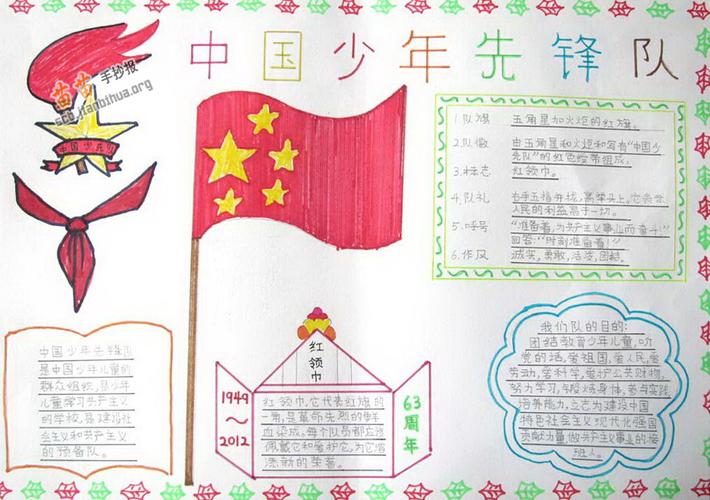 中国少年先锋队
苗苗手抄报
scb.jianbihua.org
中国少先队
1.队旗 五角星加火炬的红旗。
2.队徽 由五角星和火炬和写有“中国少
先队”的红色绶带组成。
3.标志 红领巾。
4.队礼 右手五指并拢,高举头上。它表示
人民的利益高于一切。
5.呼号 “准备着,为共产主义事业而奋斗!”
回答:“时刻准备着!”
6.作风 诚实,勇敢,活泼,团结。
中国少年先锋队
是中国少年儿童的
群众组织,是少年
儿童学习共产主义
的学校,是建设社
会主义和共产主义
的预备队。
红领巾
1949
~
2012
红领巾,它代表红旗的
一角,是革命先烈的鲜
血染成。每个队员都应该
佩戴它和爱护它,为它增
添新的荣誉。
63周年
我们队的目的:
团结教育少年儿童,听
党的话,爱祖国,爱人民,爱
劳动,爱科学,爱护公共财物,
努力学习,锻炼身体,参与实践
培养能力,立志为建设中国
特色社会主义现代化强国
贡献力量,做共产主义事业的接
班人。